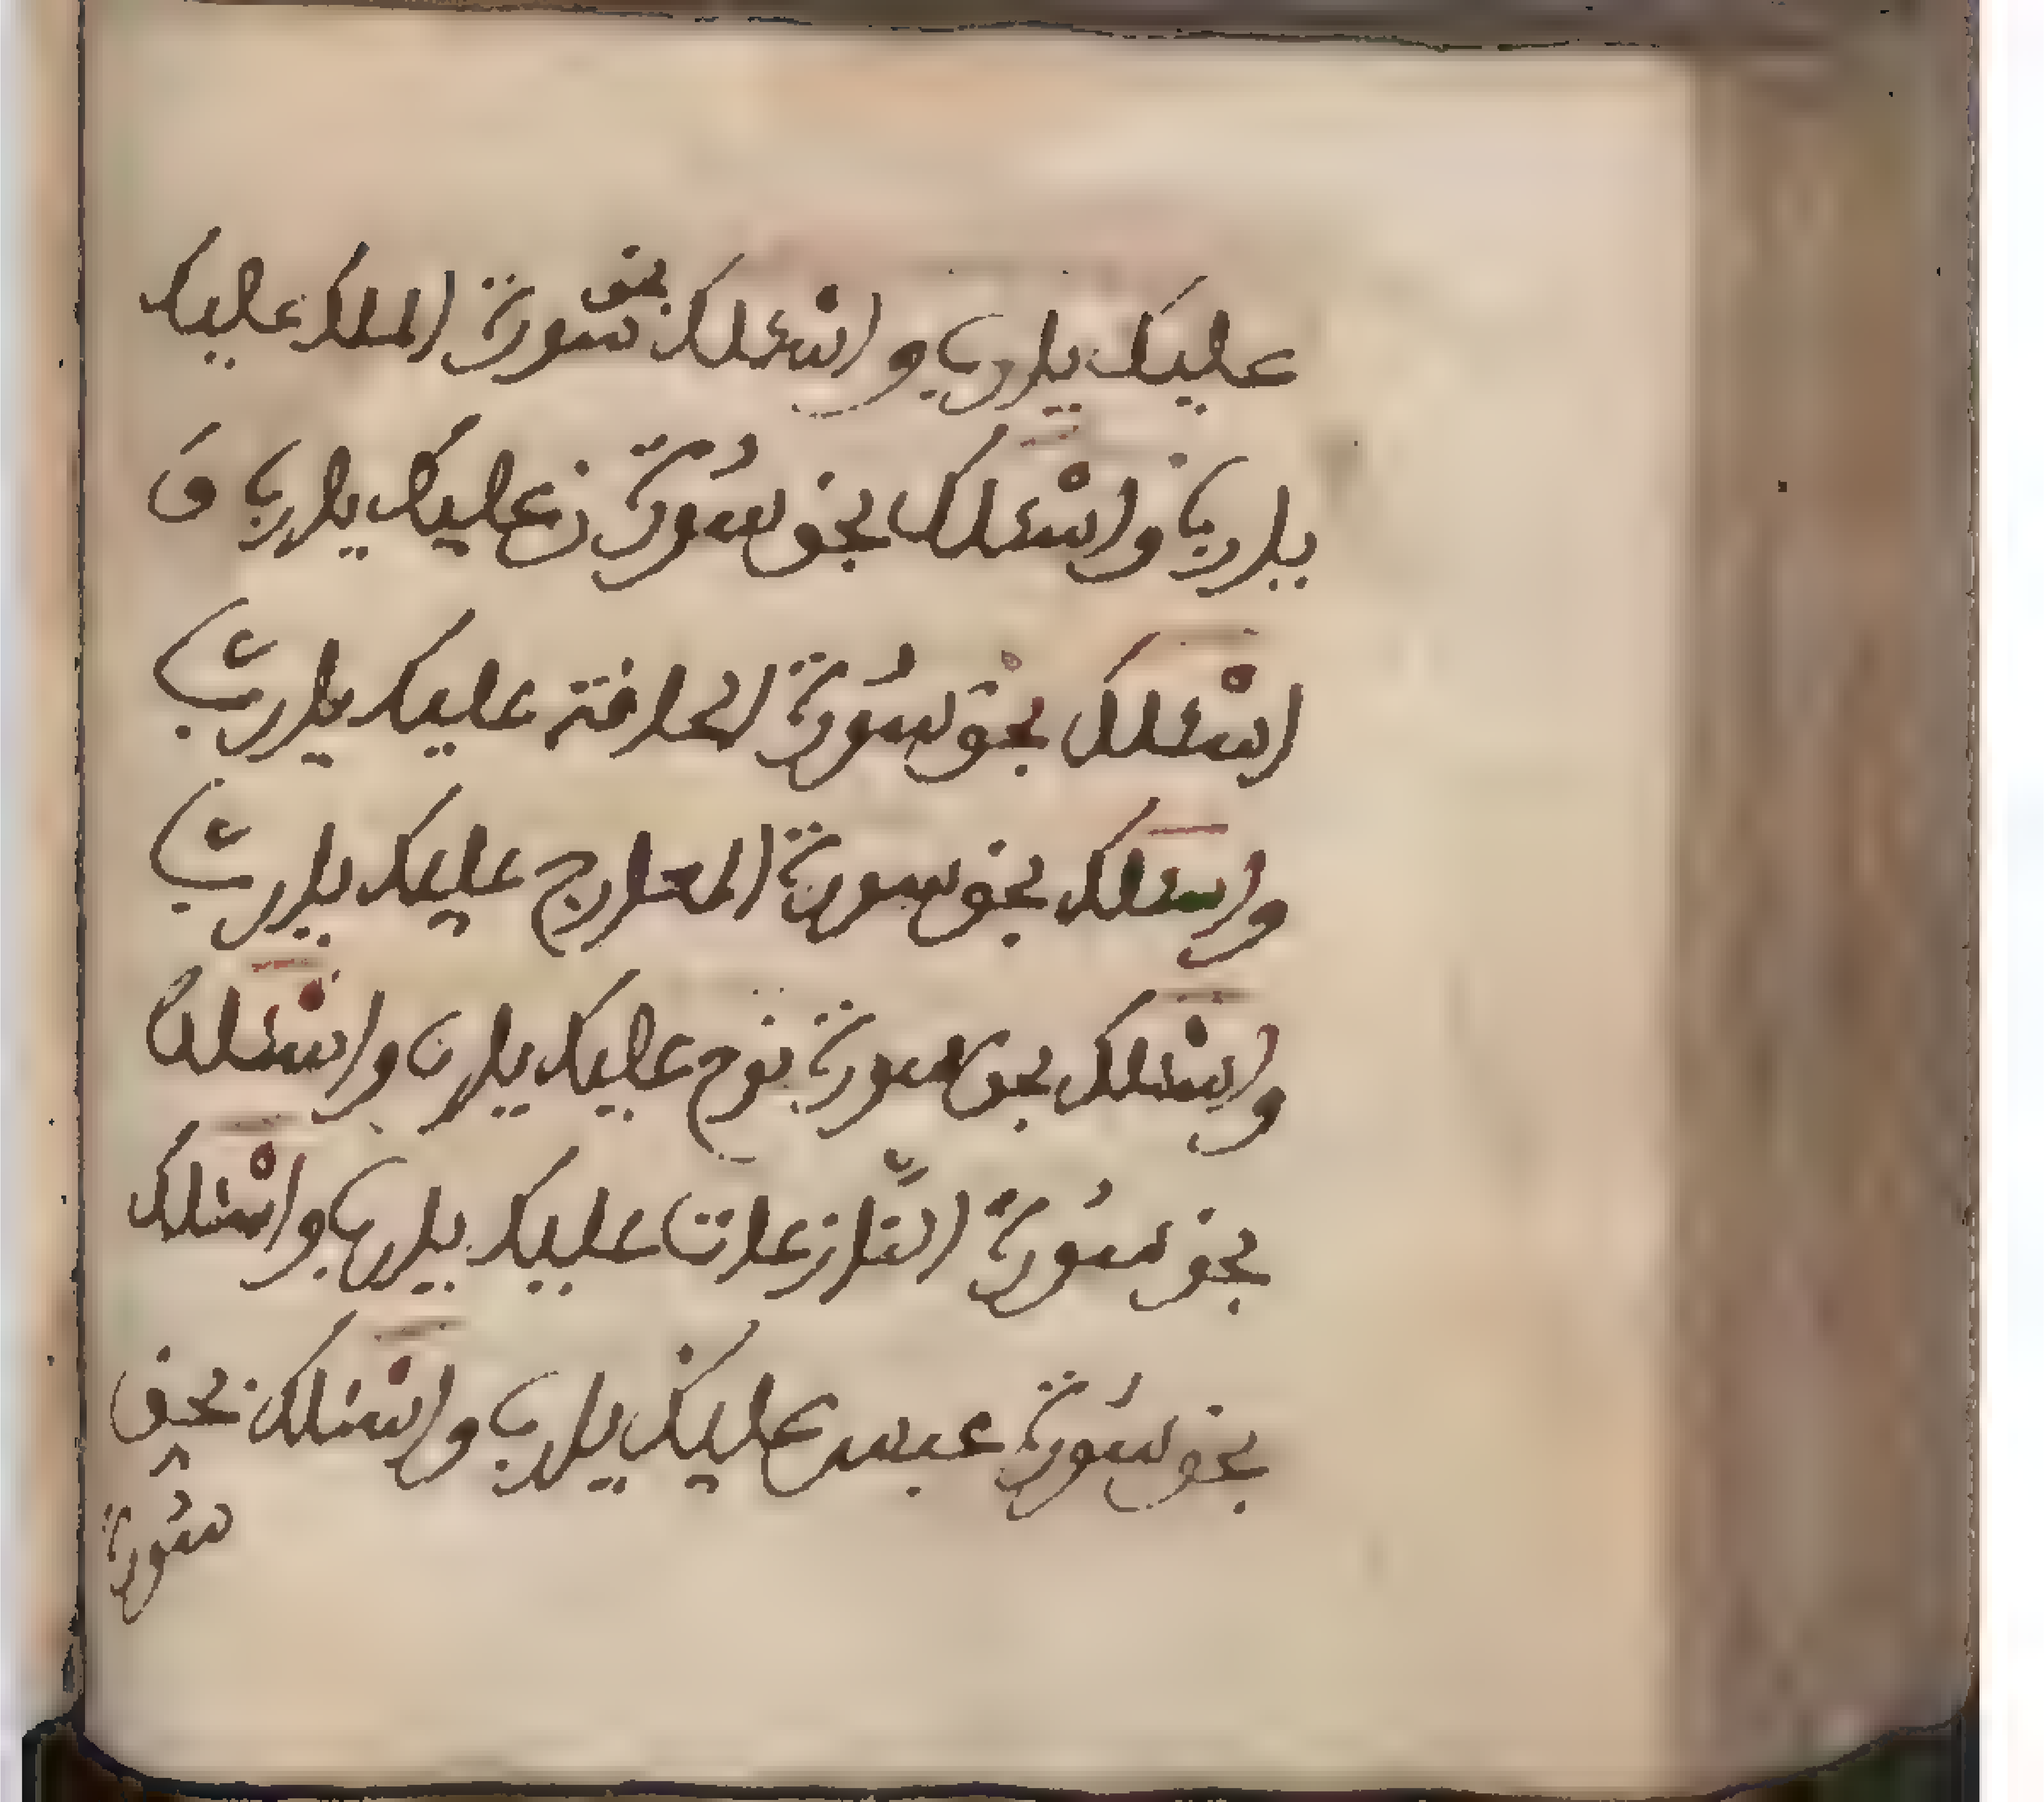 عليك يا رب و اسئلك بحق سورة الملك عليك
يا رب واسئلك بحق سُورة ن عليك يا رب وَ
اسْئلك بحق سُورة الحافته عليك يا ربّ
واسئلك بحق سورة المعارج عليك يا ربّ
واسْئلك بحق سورة نوح عليك يا رب واسْئلك
بحق سُورة النّازعات عليك يا رب واسْئلك
بحق سُورة عبس عليك يا رب واسْئلك بحق
سُورة